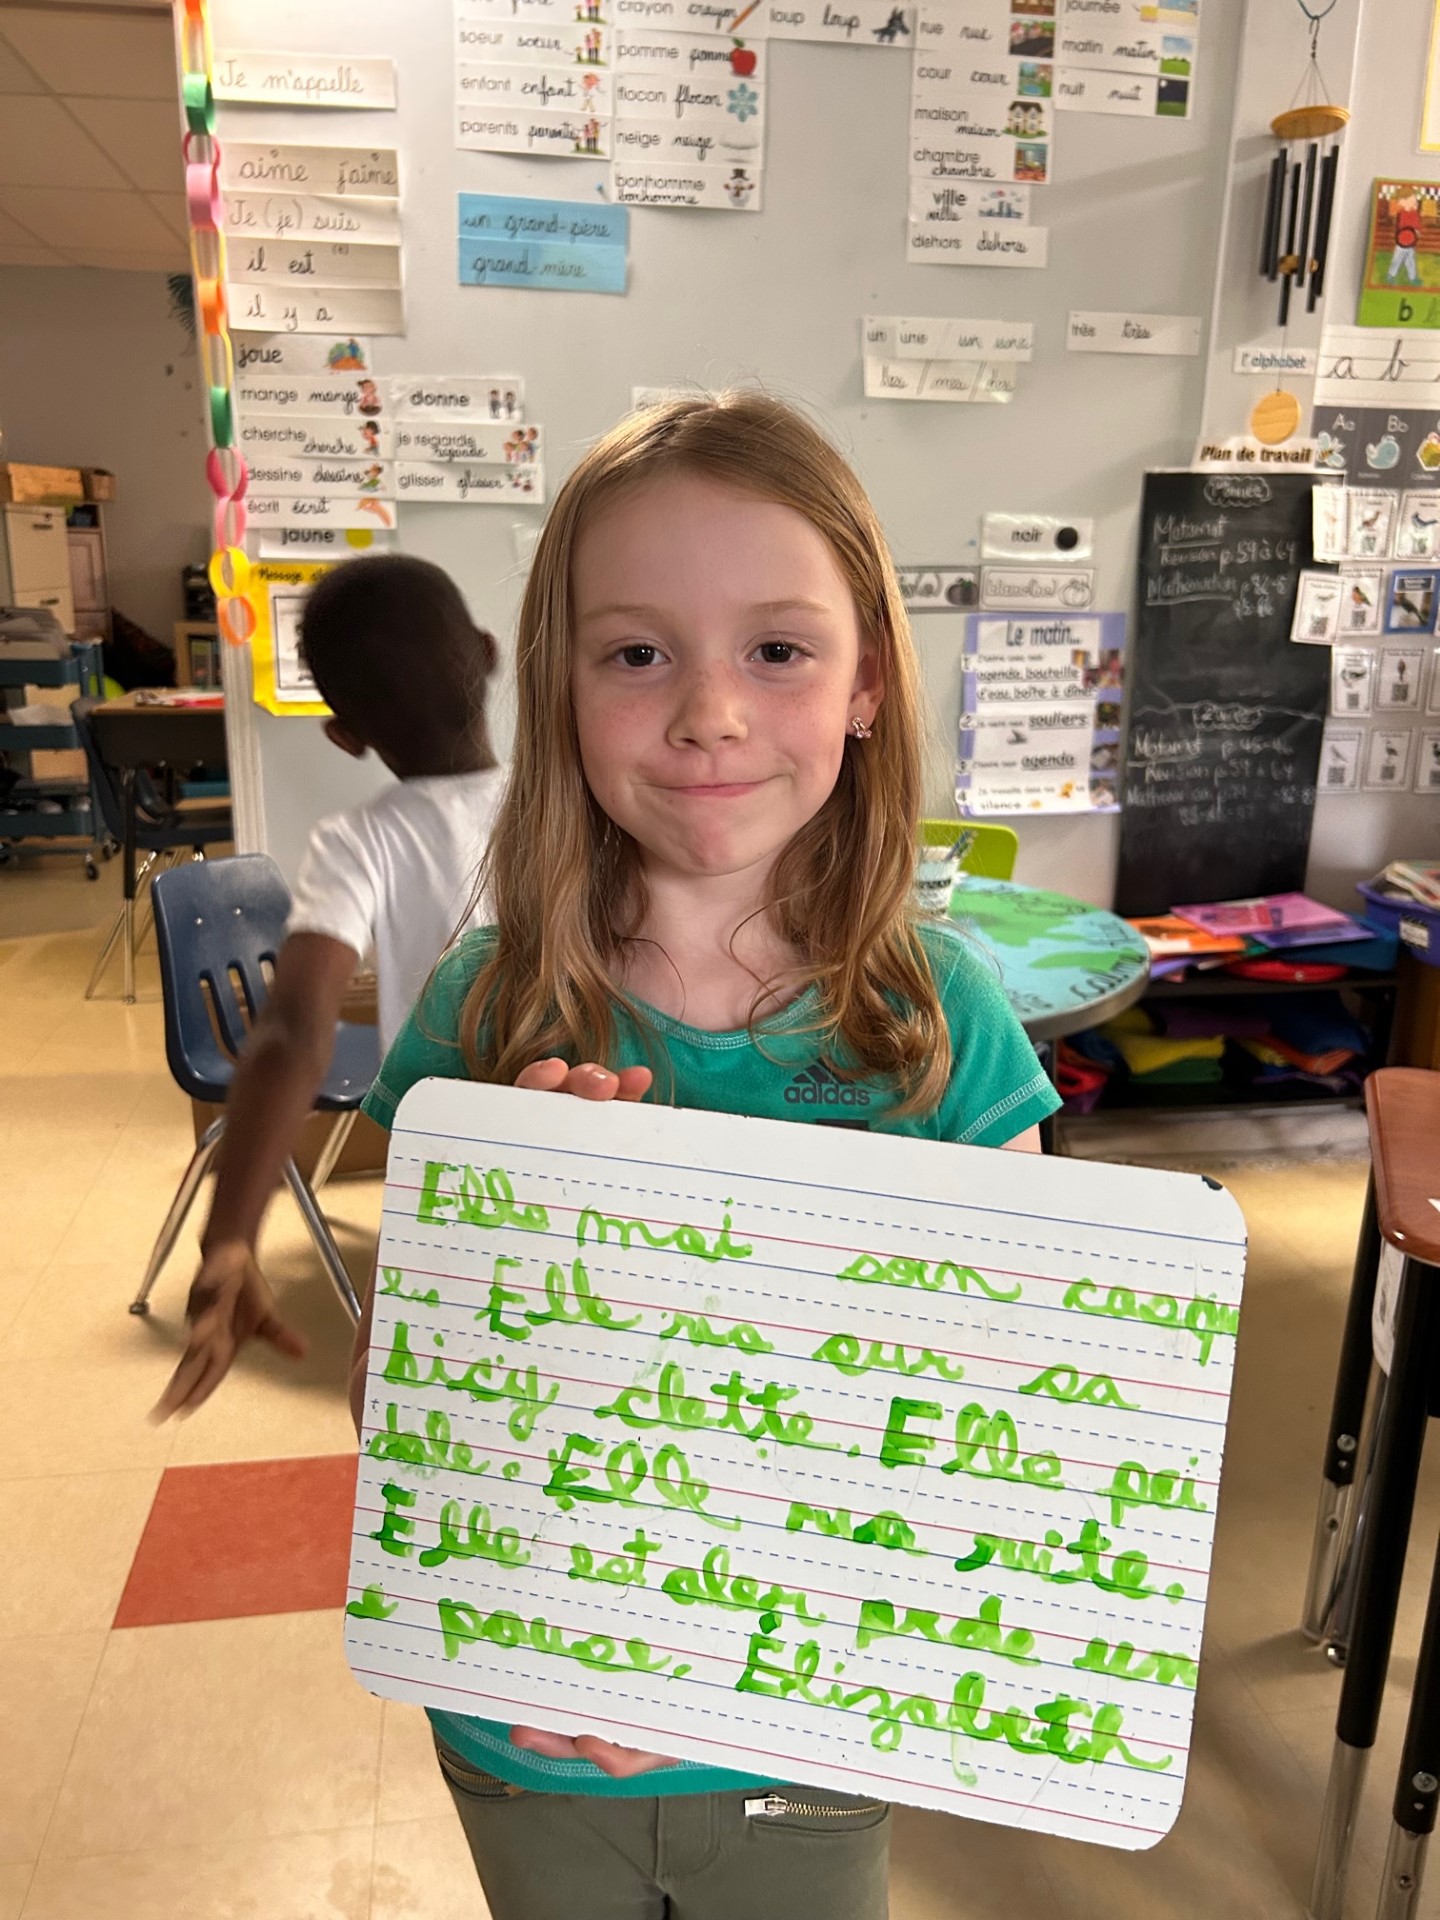 Je m'appelle
aime j'aime
Je (je) suis
il est (e)
il y a
joue
mange mange
cherche cherche
dessine dessine
écrit écrit
jaune
donne
je regarde regarde
glisser glisser
soeur soeur
enfant enfant
parents parents
un grand-père
grand-mère
crayon crayon
pomme pomme
flocon flocon
neige neige
bonhomme bonhomme
loup loup
rue rue
cour cour
maison maison
chambre chambre
ville ville
dehors dehors
journée
matin matin
nuit nuit
un une / un une
les / mes / des
très très
l'alphabet
a b
b
Aa Bb
Plan de travail
noir
blanche
Le matin...
agenda, bouteille
d'eau, boîte à dîner
2 souliers
3 agenda
4
silence
p.59 à 64
adidas
Elle mai son casqu
e Elle va sur sa
bicy clette. Elle péi
dale. Elle va vite.
Elle est aler prde un
e pause. Élizabeth